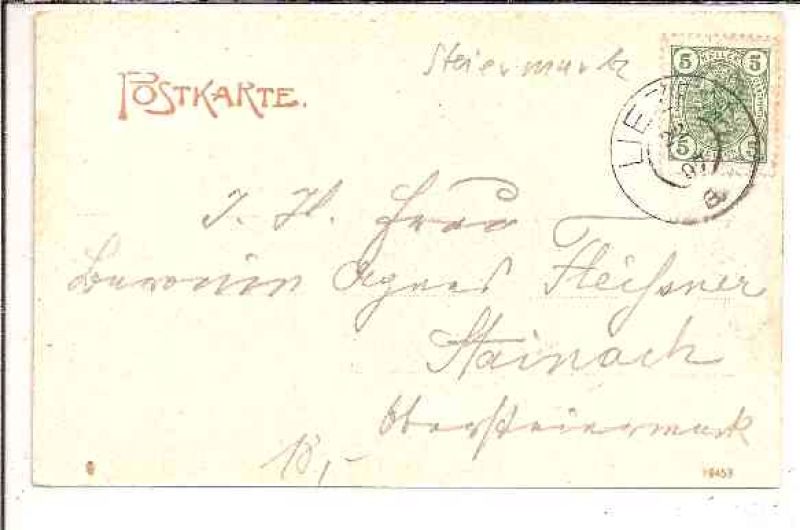 Steiermark
POSTKARTE.
5 HELLER 5
5 5
LIEZ
I. H. Frau
Baronin Agnes Fleissner
Stainach
Obersteiermark
18,-
19453